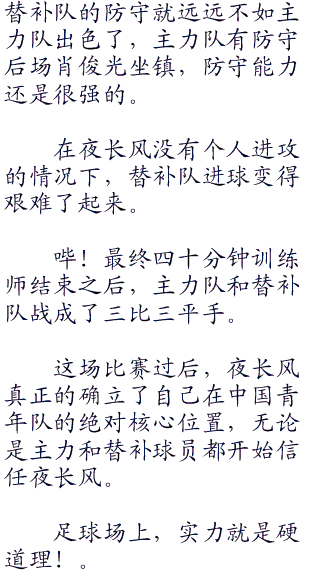 替补队的防守就远远不如主
力队出色了，主力队有防守
后场肖俊光坐镇，防守能力
还是很强的。
在夜长风没有个人进攻
的情况下，替补队进球变得
艰难了起来。
哔！最终四十分钟训练
师结束之后，主力队和替补
队战成了三比三平手。
这场比赛过后，夜长风
真正的确立了自己在中国青
年队的绝对核心位置，无论
是主力和替补球员都开始信
任夜长风。
足球场上，实力就是硬
道理！。